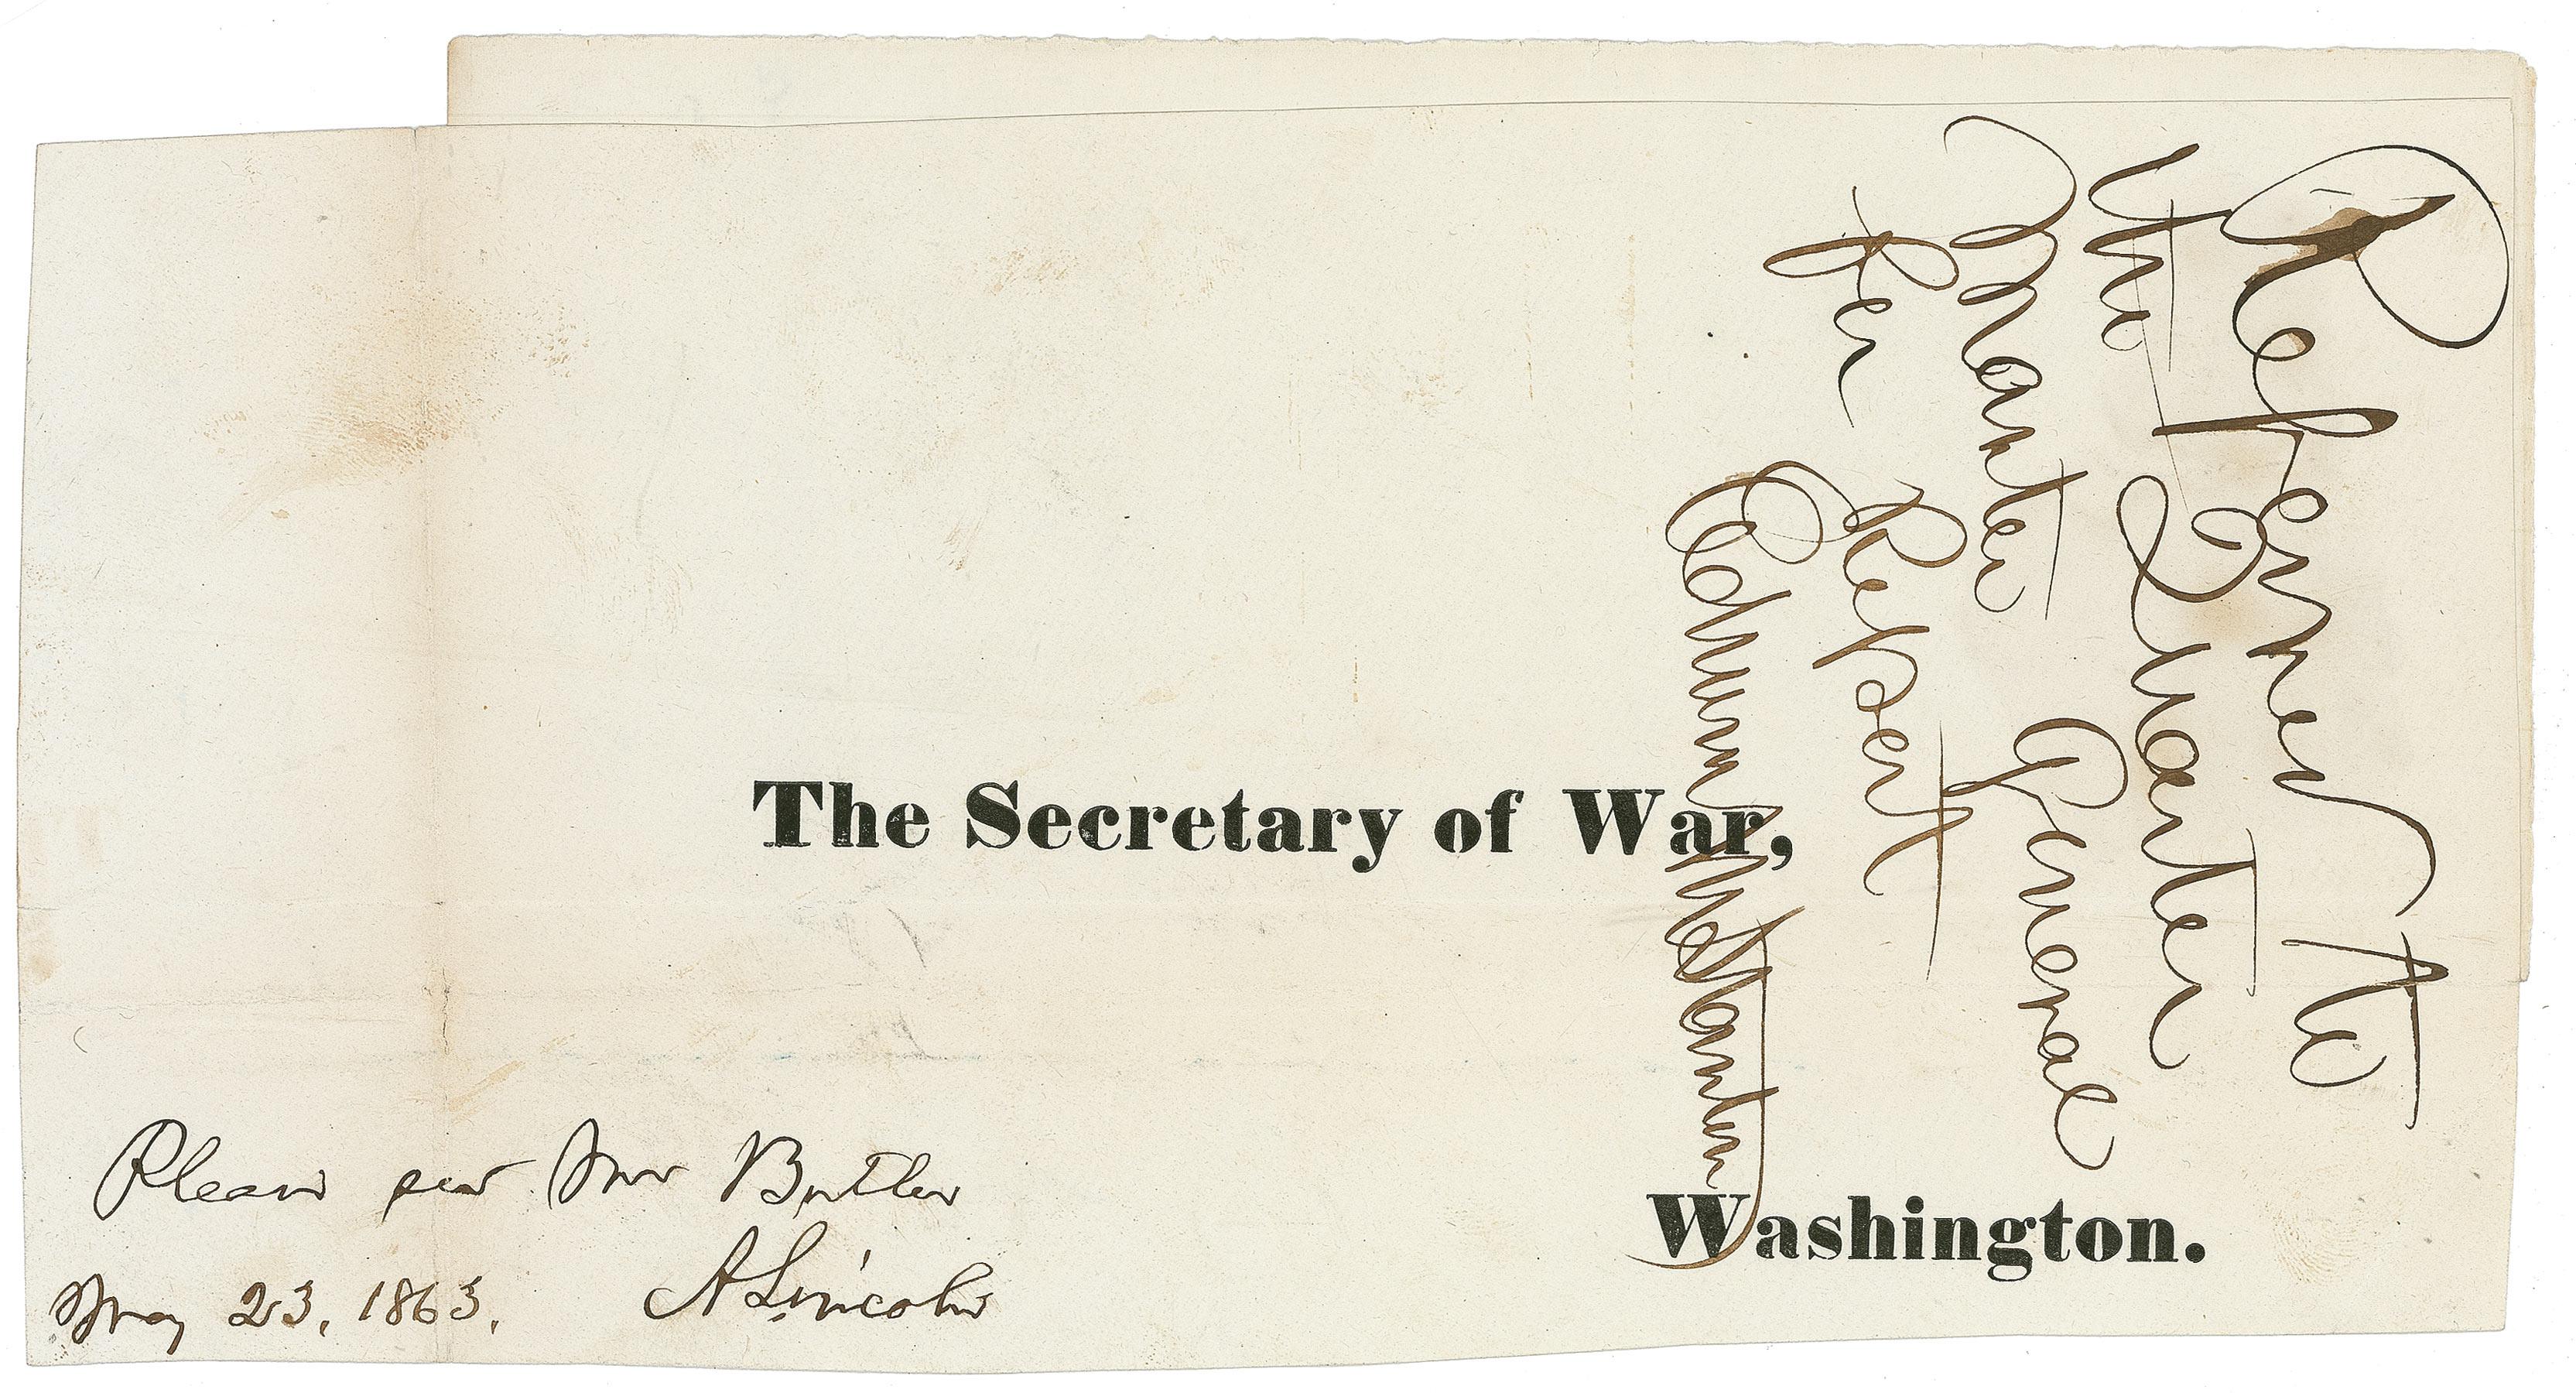 The Secretary of War,
Washington.
Please see Mr Butler
A. Lincoln
May 23, 1863.
Referred to
the Quarter
Master General
for Report
Edwin M Stanton